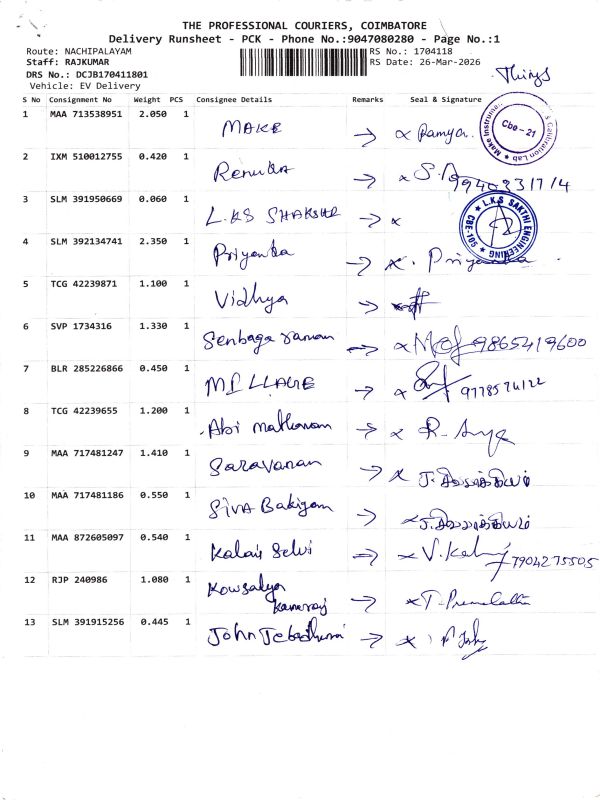 THE PROFESSIONAL COURIERS, COIMBATORE
Delivery Runsheet - PCK - Phone No.:9047080280 - Page No.:1
Route: NACHIPALAYAM RS No.: 1704118
Staff: RAJKUMAR RS Date: 26-Mar-2026
DRS No.: DCJB170411801
Vehicle: EV Delivery
Things
S No Consignment No Weight PCS Consignee Details Remarks Seal & Signature
1 MAA 713538951 2.050 1 MAKE → x Ramya. Cbe-21
2 IXM 510012755 0.420 1 Renuka → x
3 SLM 391950669 0.060 1 L.KS → x L.K.S SAKTHI ENGINEERING CBE-105
4 SLM 392134741 2.350 1 Priyanka → x. Priyanka
5 TCG 42239871 1.100 1 Vidhya →
6 SVP 1734316 1.330 1 Senbaga raman → x 9865419600
7 BLR 285226866 0.450 1 → x
8 TCG 42239655 1.200 1 Abi → x
9 MAA 717481247 1.410 1 Saravanan → x
10 MAA 717481186 0.550 1 Siva Bakigam → x
11 MAA 872605097 0.540 1 Kalai Selvi → x 7904275505
12 RJP 240986 1.080 1 Kowsalya → x T. Premalatha
Kamaraj
13 SLM 391915256 0.445 1 John → x